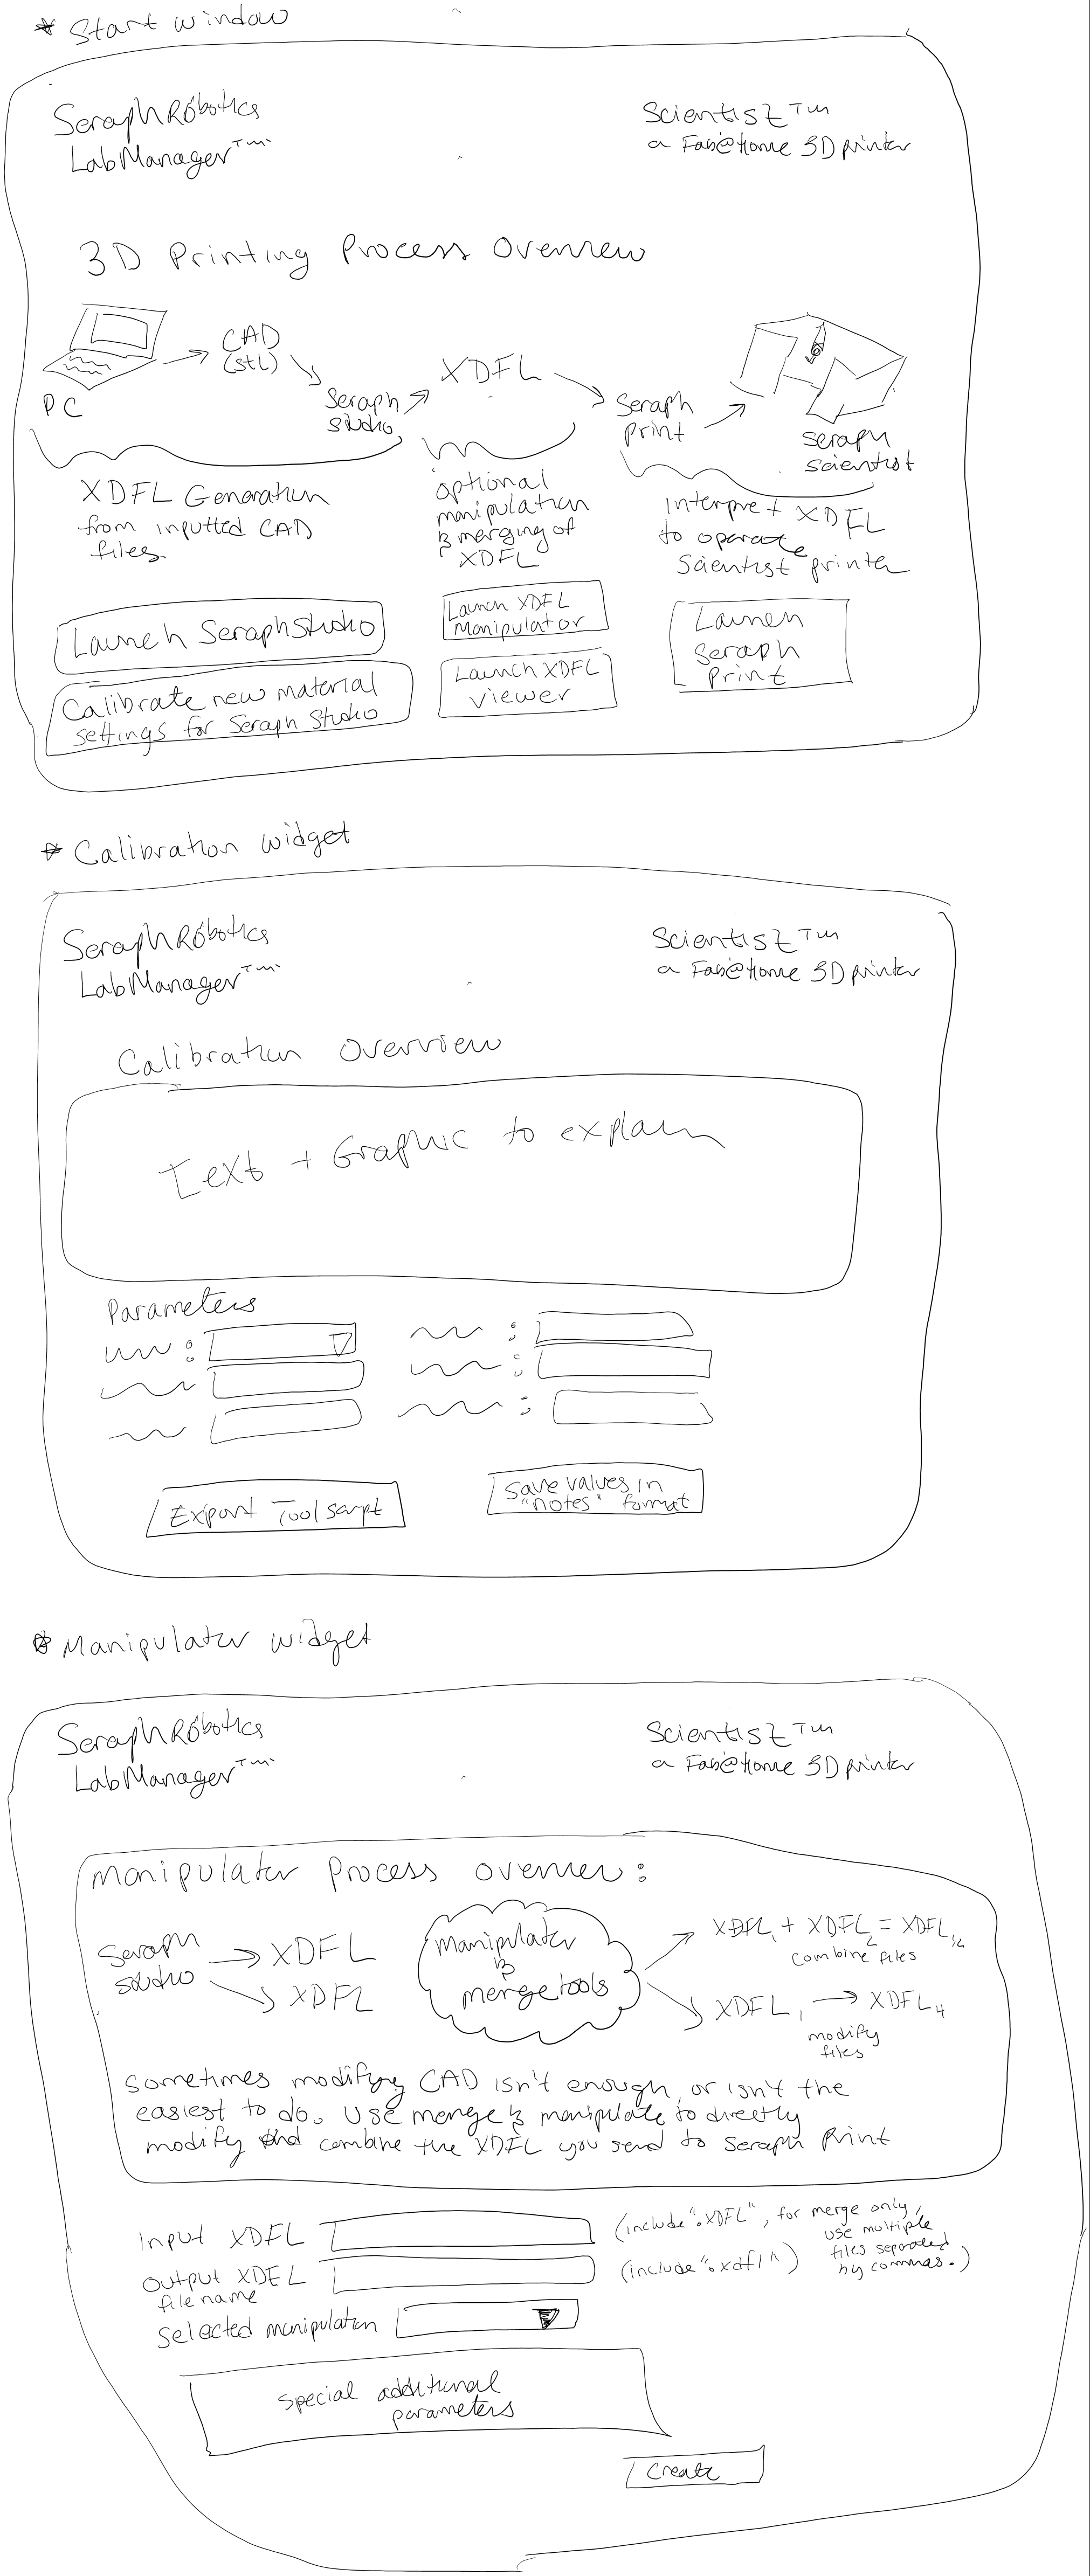 * Start window
SeraphRobotics
LabManager™
Scientist™
a Fab@Home 3D printer
3D Printing Process Overview
PC
CAD
(stl)
Seraph
studio
XDFL
Seraph
print
seraph
scientist
XDFL Generation
from inputted CAD
files
optional
manipulation
& merging of
XDFL
interpret XDFL
to operate
Scientist printer
Launch SeraphStudio
Calibrate new material
settings for Seraph Studio
Launch XDFL
Manipulator
Launch XDFL
viewer
Launch
Seraph
Print
* Calibration widget
SeraphRobotics
LabManager™
Scientist™
a Fab@Home 3D printer
Calibration Overview
Text + Graphic to explain
Parameters
Export Tool script
Save values in
"notes" format
* Manipulator widget
SeraphRobotics
LabManager™
Scientist™
a Fab@Home 3D printer
Manipulator Process overview:
Seraph
studio
XDFL
XDFL
manipulator
&
merge tools
XDFL1 + XDFL2 = XDFL12
combine files
XDFL1 → XDFL4
modify
files
sometimes modifying CAD isn't enough, or isn't the
easiest to do. Use merge & manipulate to directly
modify and combine the XDFL you send to Seraph Print
Input XDFL
(include ".XDFL", for merge only,
use multiple
files separated
by commas.)
Output XDFL
file name
(include ".xdfl")
Selected manipulation
special additional
parameters
create